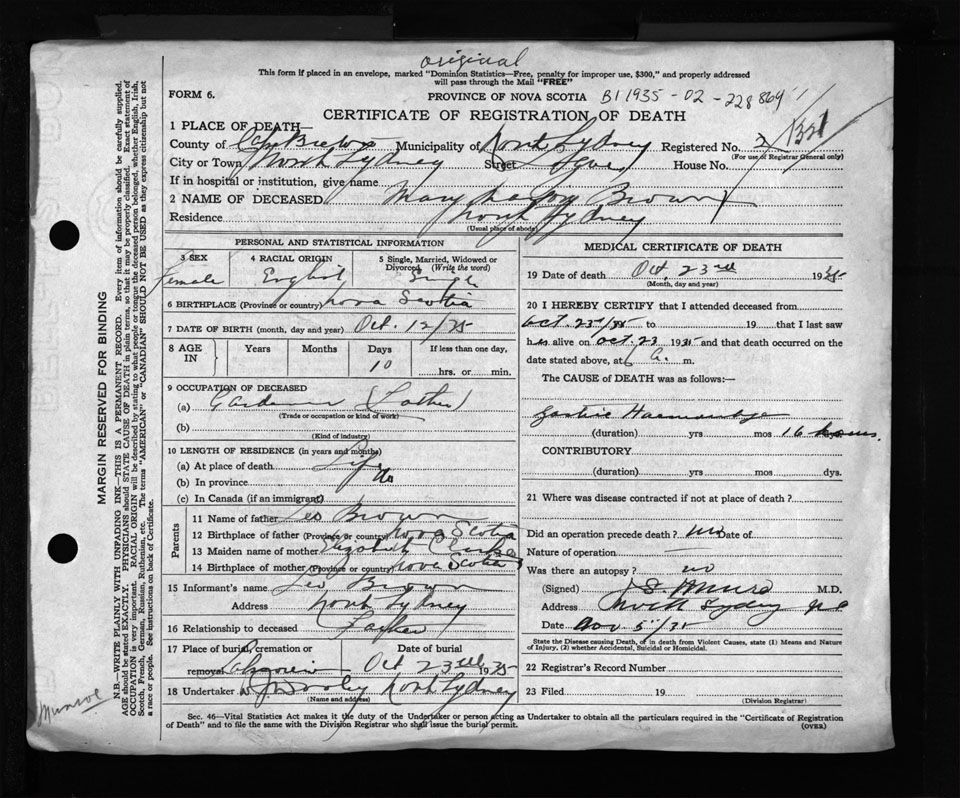 original
This form if placed in an envelope, marked "Dominion Statistics—Free, penalty for improper use, $300," and properly addressed
will pass through the Mail "FREE"
FORM 6.
PROVINCE OF NOVA SCOTIA B1 1935-02-228864
CERTIFICATE OF REGISTRATION OF DEATH
1 PLACE OF DEATH—
County of Cape Breton Municipality of North Sydney Registered No.
(For use of Registrar General only)
City or Town North Sydney Street House No.
If in hospital or institution, give name
2 NAME OF DECEASED Mary Brown
Residence North Sydney
(Usual place of abode)
PERSONAL AND STATISTICAL INFORMATION
3 SEX 4 RACIAL ORIGIN 5 Single, Married, Widowed or
Divorced (Write the word)
Female English Single
6 BIRTHPLACE (Province or country) Nova Scotia
7 DATE OF BIRTH (month, day and year) Oct. 12/35
8 AGE IN Years Months Days If less than one day,
10 hrs. or min.
9 OCCUPATION OF DECEASED
(a) (Father)
(Trade or occupation or kind of work)
(b)
(Kind of industry)
10 LENGTH OF RESIDENCE (in years and months)
(a) At place of death Life
(b) In province do
(c) In Canada (if an immigrant)
Parents
11 Name of father Leo Brown
12 Birthplace of father (Province or country) Nova Scotia
13 Maiden name of mother Elizabeth
14 Birthplace of mother (Province or country) Nova Scotia
15 Informant's name Leo Brown
Address North Sydney
16 Relationship to deceased Father
17 Place of burial, cremation or Date of burial
removal Oct 23rd 1935
18 Undertaker W. J. Dooley North Sydney
(Name and address)
MEDICAL CERTIFICATE OF DEATH
19 Date of death Oct. 23rd 1935
(Month, day and year)
20 I HEREBY CERTIFY that I attended deceased from
Oct. 23rd/35 to 19 that I last saw
her alive on Oct. 23 1935 and that death occurred on the
date stated above, at 6 a. m.
The CAUSE of DEATH was as follows:—
Gastric Haemorrhage
(duration) yrs mos 16 hours.
CONTRIBUTORY
(duration) yrs mos. dys.
21 Where was disease contracted if not at place of death?
Did an operation precede death? no Date of
Nature of operation —
Was there an autopsy? no
(Signed) Munro M.D.
Address North Sydney N.S.
Date Nov 5"/35
State the Disease causing Death, or, in death from Violent Causes, state (1) Means and Nature
of Injury, (2) whether Accidental, Suicidal or Homicidal.
22 Registrar's Record Number
23 Filed 19
(Division Registrar)
Sec. 46—Vital Statistics Act makes it the duty of the Undertaker or person acting as Undertaker to obtain all the particulars required in the "Certificate of Registration
of Death" and to file the same with the Division Registrar who shall issue the burial permit.
(OVER)
MARGIN RESERVED FOR BINDING
N.B.—WRITE PLAINLY WITH UNFADING INK—THIS IS A PERMANENT RECORD. Every item of information should be carefully supplied.
AGE should be stated EXACTLY. PHYSICIANS should STATE CAUSE OF DEATH in plain terms, so that it may be properly classified. Exact statement of
OCCUPATION is very important. RACIAL ORIGIN will be described by stating to what people or tongue the deceased person belonged, whether English, Irish,
Scotch, French, German, Russian, Ruthenian, etc. The terms "AMERICAN" or "CANADIAN" SHOULD NOT BE USED as they express citizenship but not
a race or people. See instructions on back of Certificate.
Munroe